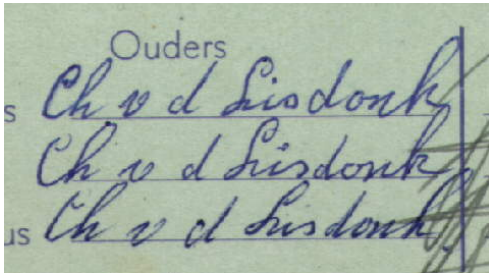 Ouders
s Ch v d Lisdonk
Ch v d Lisdonk
us Ch v d Lisdonk